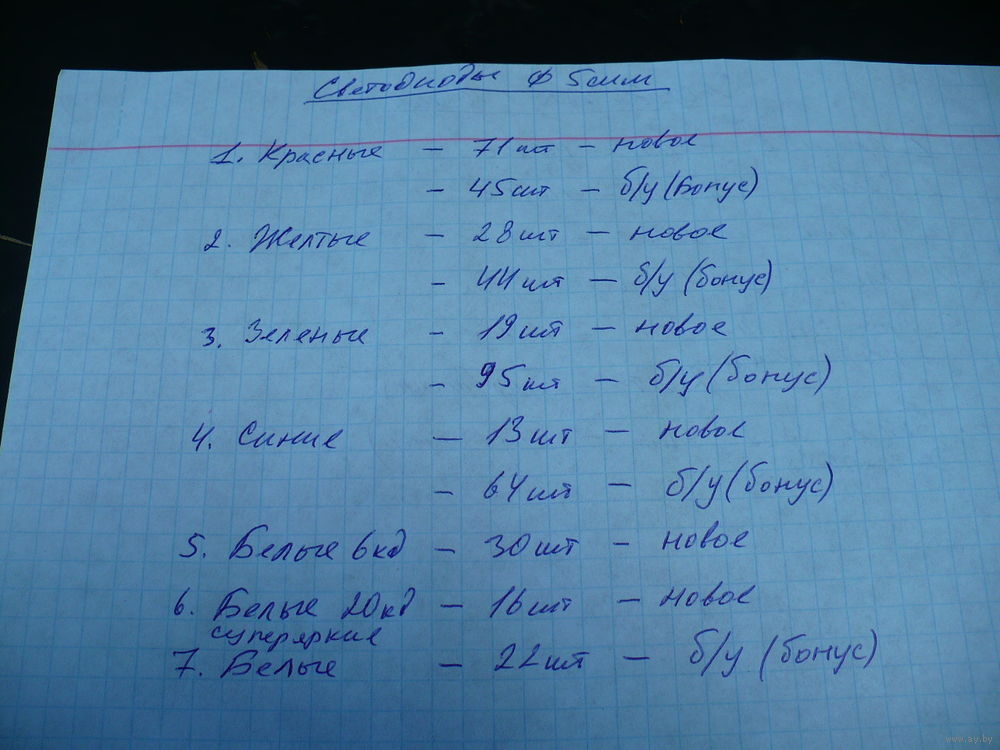 Светодиоды Ф 5мм
1. Красные - 71шт - новое
- 45шт - б/у (бонус)
2. Желтые - 28шт - новое
- 44шт - б/у (бонус)
3. Зеленые - 19шт - новое
- 95шт - б/у (бонус)
4. Синие - 13шт - новое
- 64шт - б/у (бонус)
5. Белые 6кд - 30шт - новое
6. Белые 20кд - 16шт - новое
суперяркие
7. Белые - 22шт - б/у (бонус)
www.ay.by